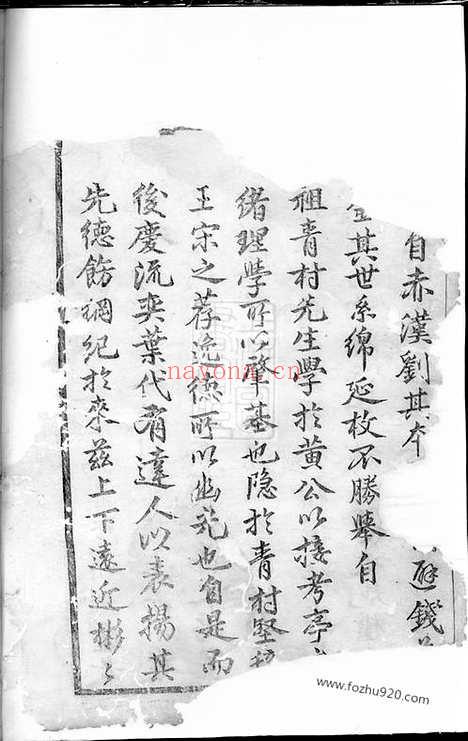 自赤漢劉其本 避錢
其世系綿延枚不勝舉自
祖青村先生學於黃公以接考亭
緒理學所以肇基也隐於青村堅
王宋之荐逸德所以幽光也自是而
後慶流奕葉代有達人以表揚其
先德飭綱紀於來兹上下遠近彬々
nayona.cn
www.fozhu920.com